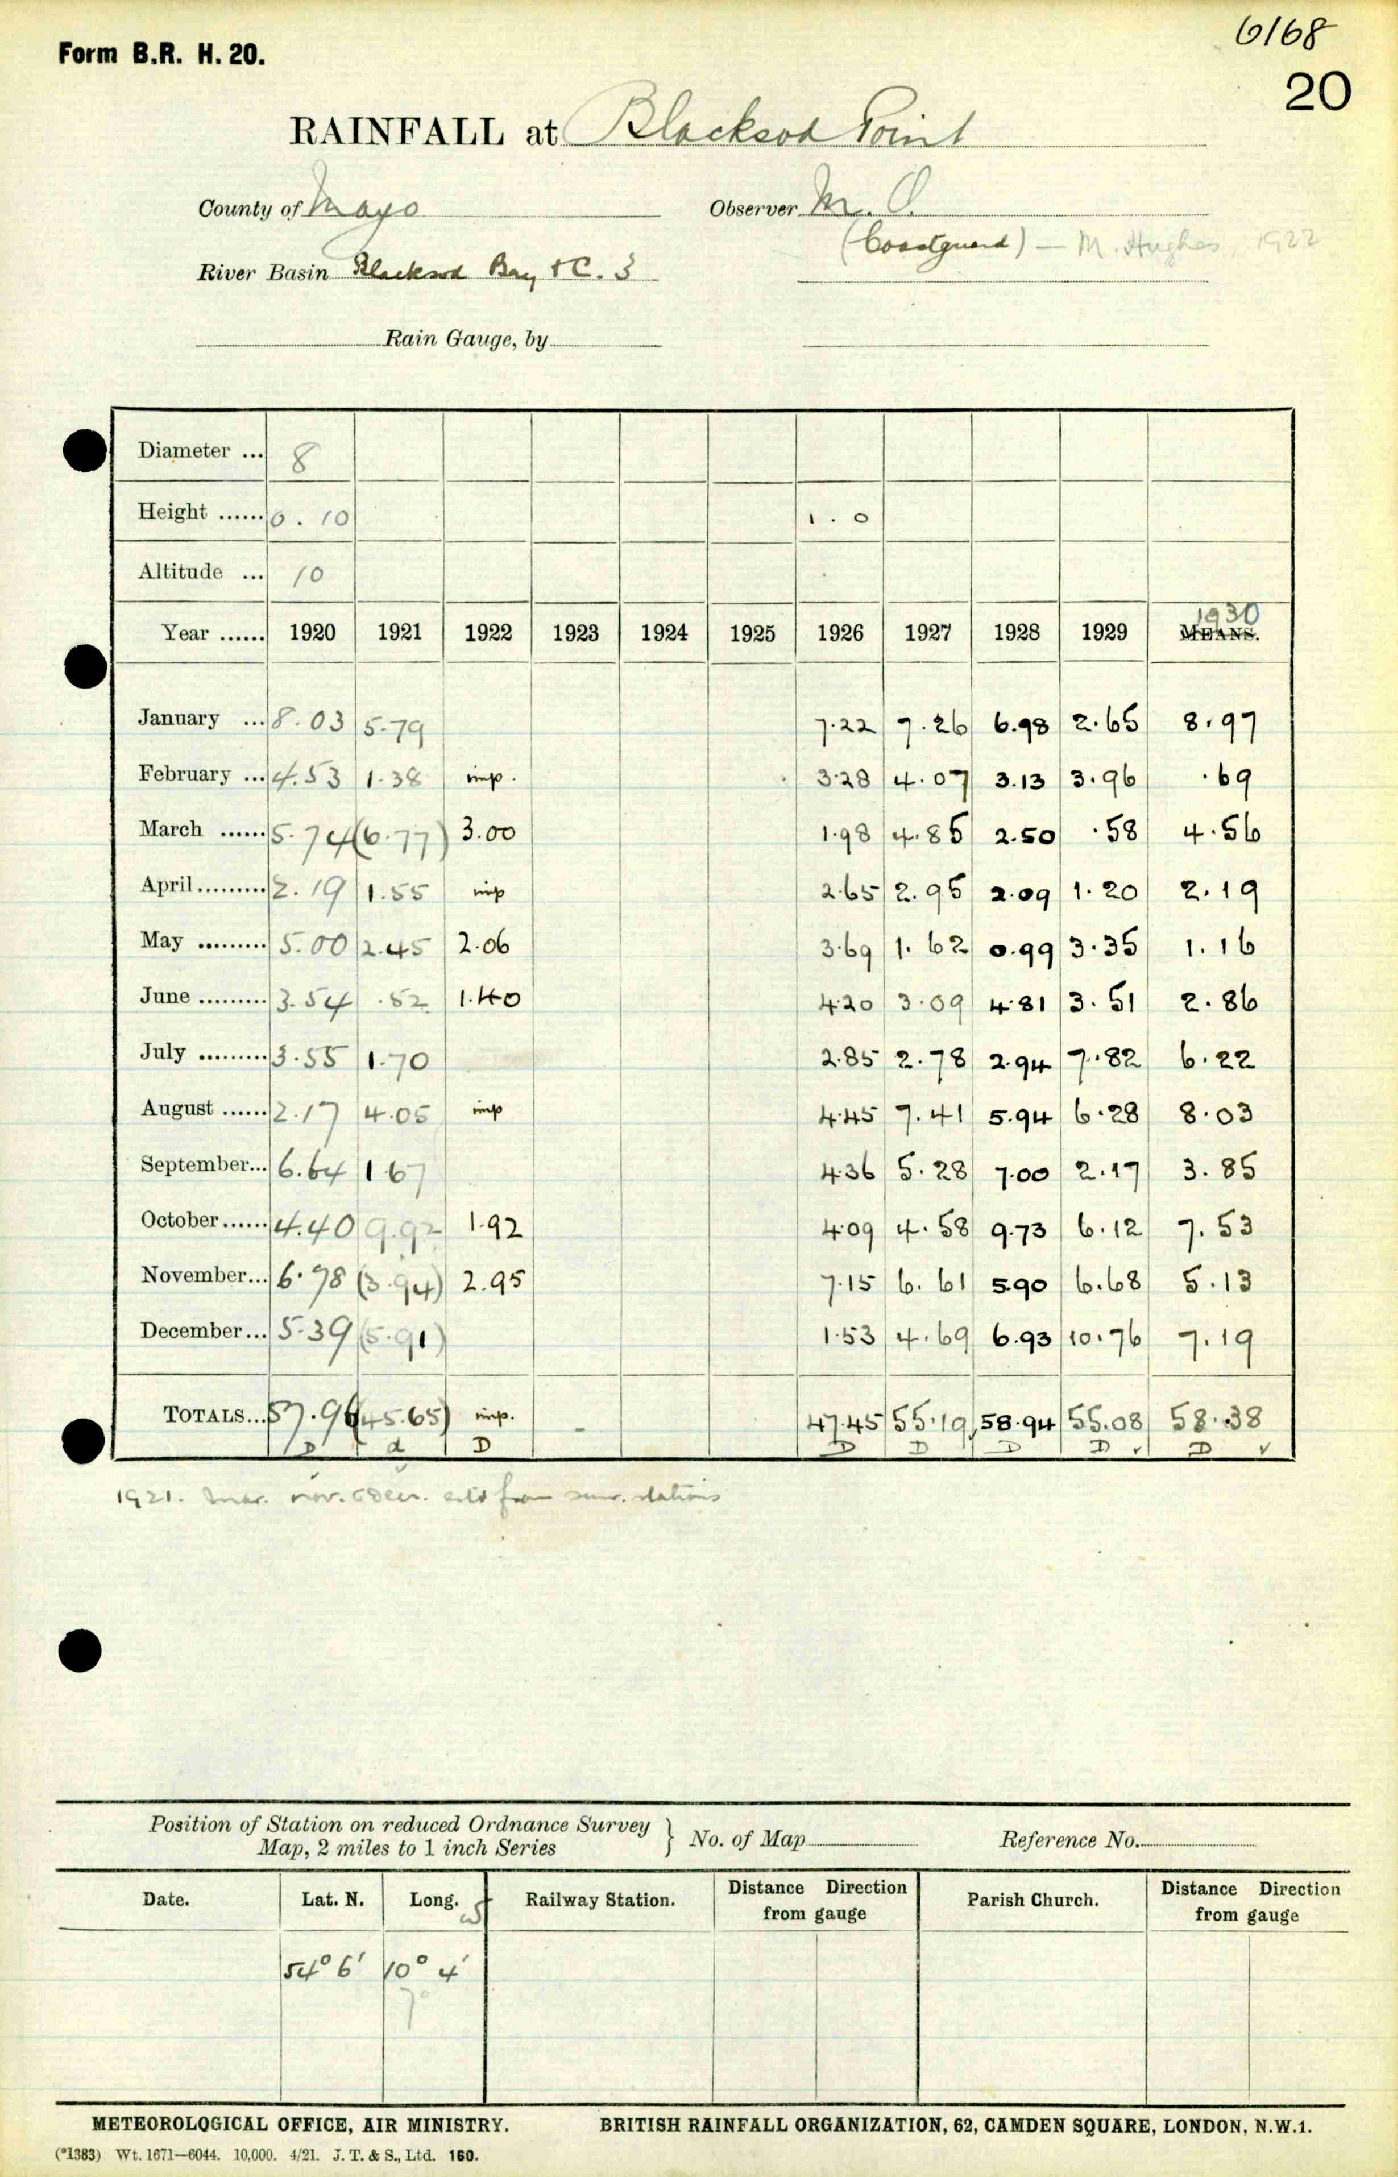 6168
Form B.R. H. 20.
20
RAINFALL at Blacksod Point
County of Mayo Observer M. O.
(Coastguard) — M. Hughes, 1922
River Basin Blacksod Bay &C. 3
Rain Gauge, by
Diameter ... 8
Height ...... 0.10 1.0
Altitude ... 10
1930
Year ...... 1920 1921 1922 1923 1924 1925 1926 1927 1928 1929 MEANS.
January ... 8.03 5.79 7.22 7.26 6.98 2.65 8.97
February ... 4.53 1.38 imp. 3.28 4.07 3.13 3.96 .69
March ...... 5.74 (6.77) 3.00 1.98 4.85 2.50 .58 4.56
April ......... 2.19 1.55 imp 2.65 2.95 2.09 1.20 2.19
May ......... 5.00 2.45 2.06 3.69 1.62 0.99 3.35 1.16
June ......... 3.54 .52 1.40 4.20 3.09 4.81 3.51 2.86
July ......... 3.55 1.70 2.85 2.78 2.94 7.82 6.22
August ...... 2.17 4.05 imp 4.45 7.41 5.94 6.28 8.03
September... 6.64 1.67 4.36 5.28 7.00 2.17 3.85
October...... 4.40 9.92 1.92 4.09 4.58 9.73 6.12 7.53
November... 6.78 (3.94) 2.95 7.15 6.61 5.90 6.68 5.13
December... 5.39 (5.91) 1.53 4.69 6.93 10.76 7.19
TOTALS... 57.96 (45.65) imp. - 47.45 55.19 58.94 55.08 58.38
D d D D D D D ✓ D ✓
1921. Mar. Nov. & Dec. estd from surr. stations
Position of Station on reduced Ordnance Survey
Map, 2 miles to 1 inch Series } No. of Map Reference No.
Date. Lat. N. Long. W Railway Station. Distance Direction from gauge Parish Church. Distance Direction from gauge
54° 6' 10° 4'
7°
METEOROLOGICAL OFFICE, AIR MINISTRY. BRITISH RAINFALL ORGANIZATION, 62, CAMDEN SQUARE, LONDON, N.W.1.
(*1383) Wt. 1671—6044. 10,000. 4/21. J. T. & S., Ltd. 160.